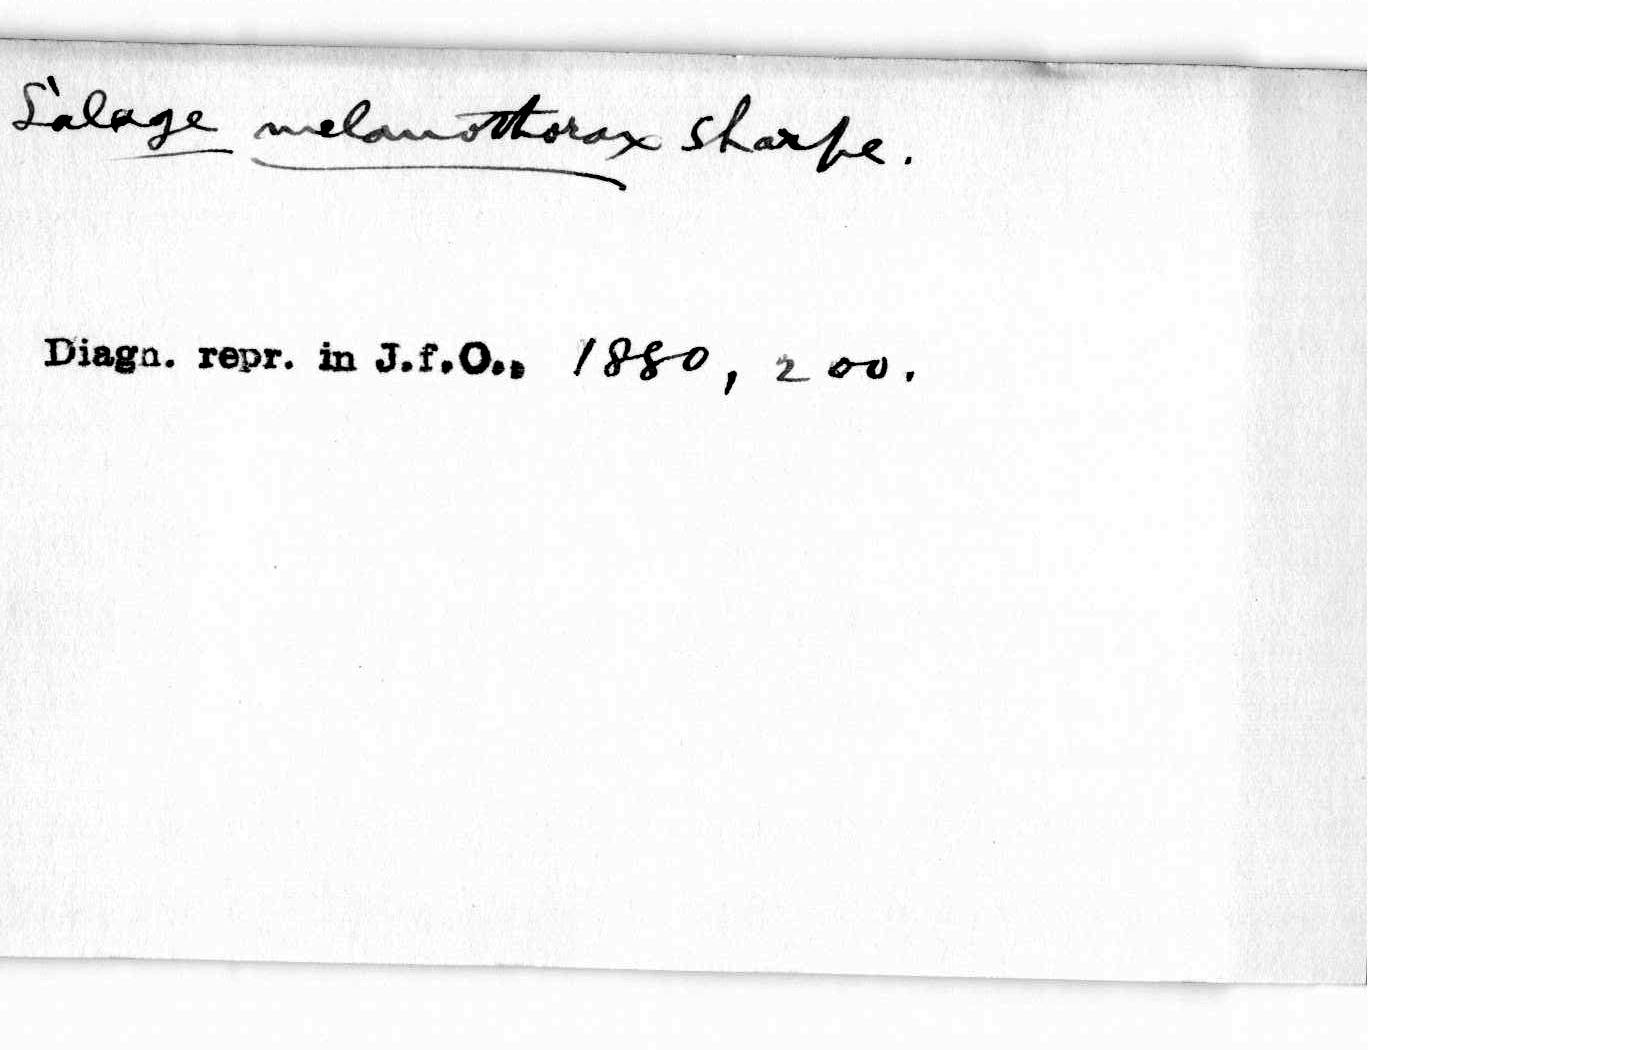 Lalage melanothorax Sharpe.
Diagn. repr. in J.f.O., 1880, 200.